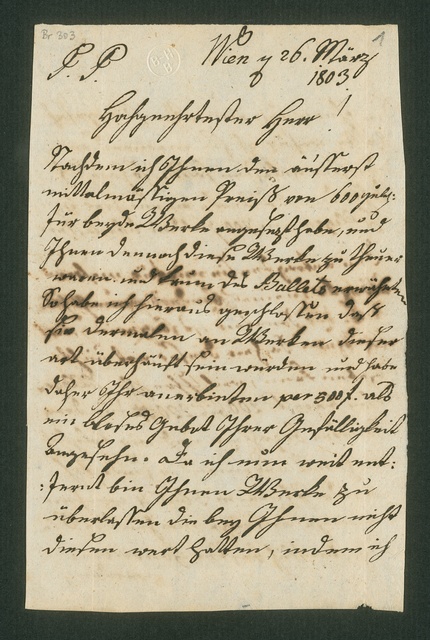 Br 303
1
P. P
Wien 26. März
1803
Hochgeehrtester Herr!
Nachdem ich Ihnen den äusserst
mittelmässigen Preiß von 600
für beyde Werke angesezt habe, und
Ihnen dennoch diese Werke zu theuer
waren und kaum des Ballets erwähnten
So habe ich hieraus geschlossen daß
sie dermalen an Werken dieser
art überhäuft sein würden und habe
daher Ihr anerbieten per 300 f. als
ein bloses Gebot Ihrer Gefälligkeit
angesehn. Da ich nun weit ent:
:fernt bin Ihnen Werke zu
überlassen die bey Ihnen nicht
diesen wert hatten, indem ich